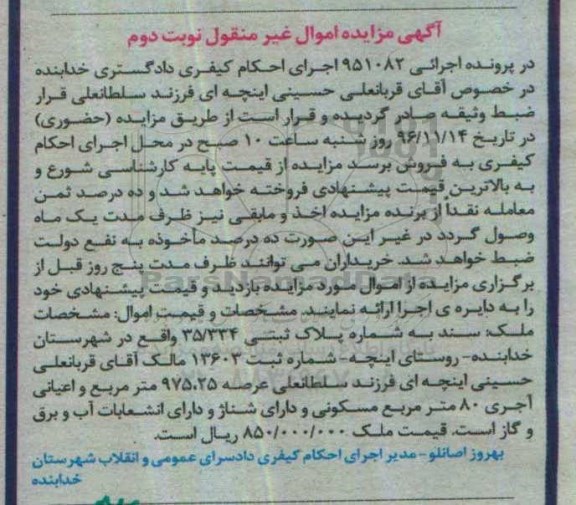 آگهی مزایده اموال غیر منقول نوبت دوم
در پرونده اجرائی ۹۵۱۰۸۲ اجرای احکام کیفری دادگستری خدابنده
در خصوص آقای قربانعلی حسینی اینچه ای فرزند سلطانعلی قرار
ضبط وثیقه صادر گردیده و قرار است از طریق مزایده (حضوری)
در تاریخ ۹۶/۱۱/۱۴ روز شنبه ساعت ۱۰ صبح در محل اجرای احکام
کیفری به فروش برسد مزایده از قیمت پایه کارشناسی شورع و
به بالاترین قیمت پیشنهادی فروخته خواهد شد و ده درصد ثمن
معامله نقداً از برنده مزایده اخذ و مابقی نیز ظرف مدت یک ماه
وصول گردد در غیر این صورت ده درصد مأخوذه به نفع دولت
ضبط خواهد شد. خریداران می توانند ظرف مدت پنج روز قبل از
برگزاری مزایده از اموال مورد مزایده بازدید و قیمت پیشنهادی خود
را به دایره ی اجرا ارائه نمایند. مشخصات و قیمت اموال: مشخصات
ملک: سند به شماره پلاک ثبتی ۳۵/۳۳۴ واقع در شهرستان
خدابنده- روستای اینچه- شماره ثبت ۱۳۶۰۳ مالک آقای قربانعلی
حسینی اینچه ای فرزند سلطانعلی عرصه ۹۷۵.۲۵ متر مربع و اعیانی
آجری ۸۰ متر مربع مسکونی و دارای شناژ و دارای انشعابات آب و برق
و گاز است. قیمت ملک ۸۵۰/۰۰۰/۰۰۰ ریال است.
بهروز اصانلو - مدیر اجرای احکام کیفری دادسرای عمومی و انقلاب شهرستان
خدابنده